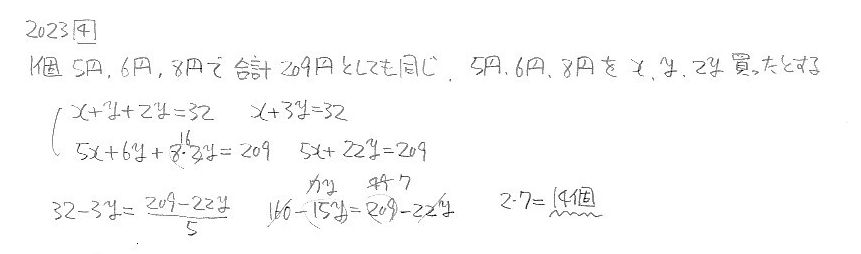 2023 4
1個 5円, 6円, 8円で 合計 209円としても同じ. 5円, 6円, 8円を x, y, 2y 買ったとする
x+y+2y=32 x+3y=32
5x+6y+16y=209 5x+22y=209
32-3y=(209-22y)/5 160-15y=209-22y 7y 49 7 2・7=14個